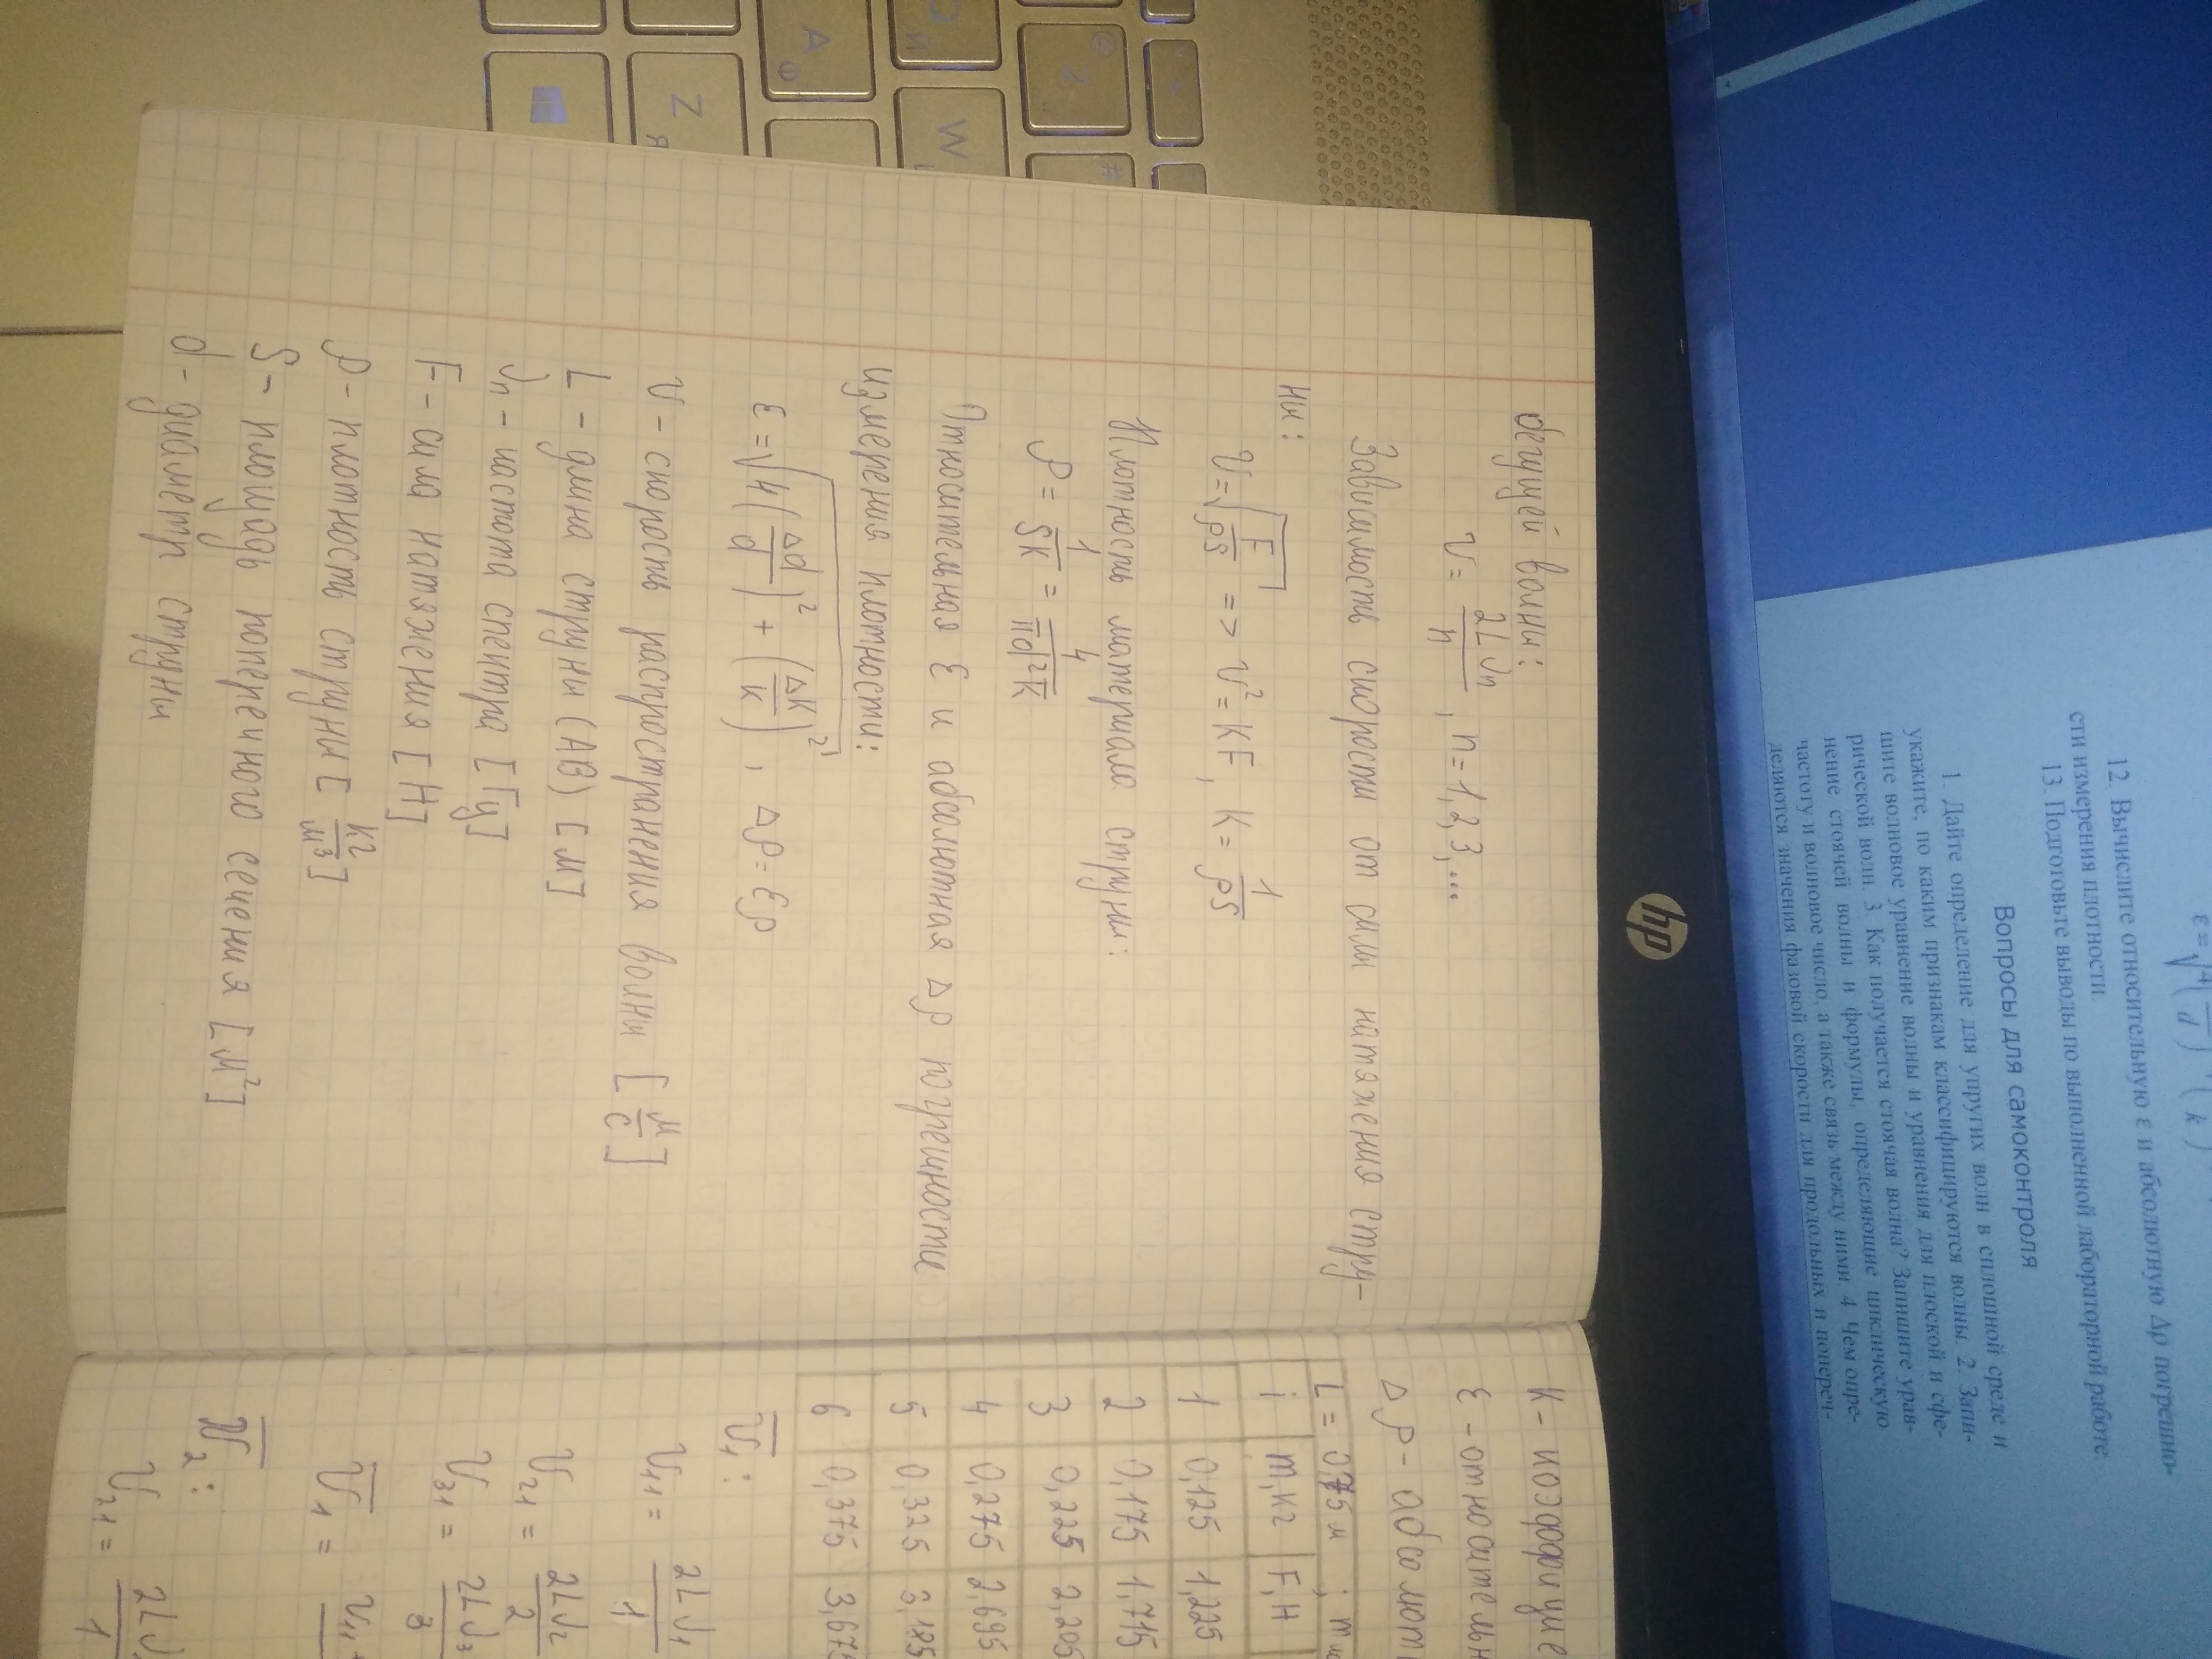 ε = √4( /d) (/k)
12. Вычислите относительную ε и абсолютную Δρ погрешно-
сти измерения плотности.
13. Подготовьте выводы по выполненной лабораторной работе.
Вопросы для самоконтроля
1. Дайте определение для упругих волн в сплошной среде и
укажите, по каким признакам классифицируются волны. 2. Запи-
шите волновое уравнение волны и уравнения для плоской и сфе-
рической волн. 3. Как получается стоячая волна? Запишите урав-
нение стоячей волны и формулы, определяющие циклическую
частоту и волновое число, а также связь между ними. 4. Чем опре-
деляются значения фазовой скорости для продольных и попереч-
hp
бегущей волны:
v = 2Lνn/n, n = 1, 2, 3, ...
Зависимость скорости от силы натяжения стру-
ны:
v = √(F/ρS) => v² = KF, K = 1/ρS
Плотность материала струны:
ρ = 1/SK = 4/πd²K
Относительная ε и абсолютная Δρ погрешности
измерения плотности:
ε = √(4(Δd/d)² + (ΔK/K)²), Δρ = ερ
v – скорость распространения волны [м/с]
L – длина струны (AB) [м]
νn – частота спектра [Гц]
F – сила натяжения [Н]
ρ – плотность струны [кг/м³]
S – площадь поперечного сечения [м²]
d – диаметр струны
K – коэффицие
ε – относительн
Δρ – абсолют
L = 0,75 м ; m
i m,кг F,Н
1 0,125 1,225
2 0,175 1,715
3 0,225 2,205
4 0,275 2,695
5 0,325 3,185
6 0,375 3,675
v̄1:
v11 = 2Lν1/1
v21 = 2Lν2/2
v31 = 2Lν3/3
v̄1 = v11+
v̄2:
v21 = 2Lν/1
Q Й
W
A Ф
Z Я
@ 2
#